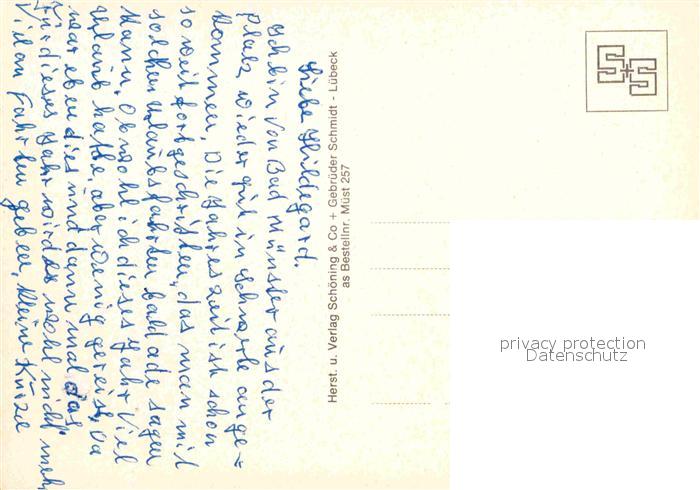 Liebe Hildegard.
Ich bin von Bad Münster aus der
Pfalz wieder gut in Schwarte ange-
kommen. Die Jahreszeit ist schon
so weit fortgeschritten, das man mit
solchen Urlaubsfahrten bald ade sagen
kann. Obwohl ich dieses Jahr viel
Urlaub hatte, aber wenig gereist. Da
war eben dies und dann mal das
Für dieses Jahr wird es wohl nicht meh,
Viel an Fahrten geben, kleine Kurze
Herst. u. Verlag Schöning & Co + Gebrüder Schmidt - Lübeck
as Bestellnr. Müst 257
S+S
privacy protection
Datenschutz